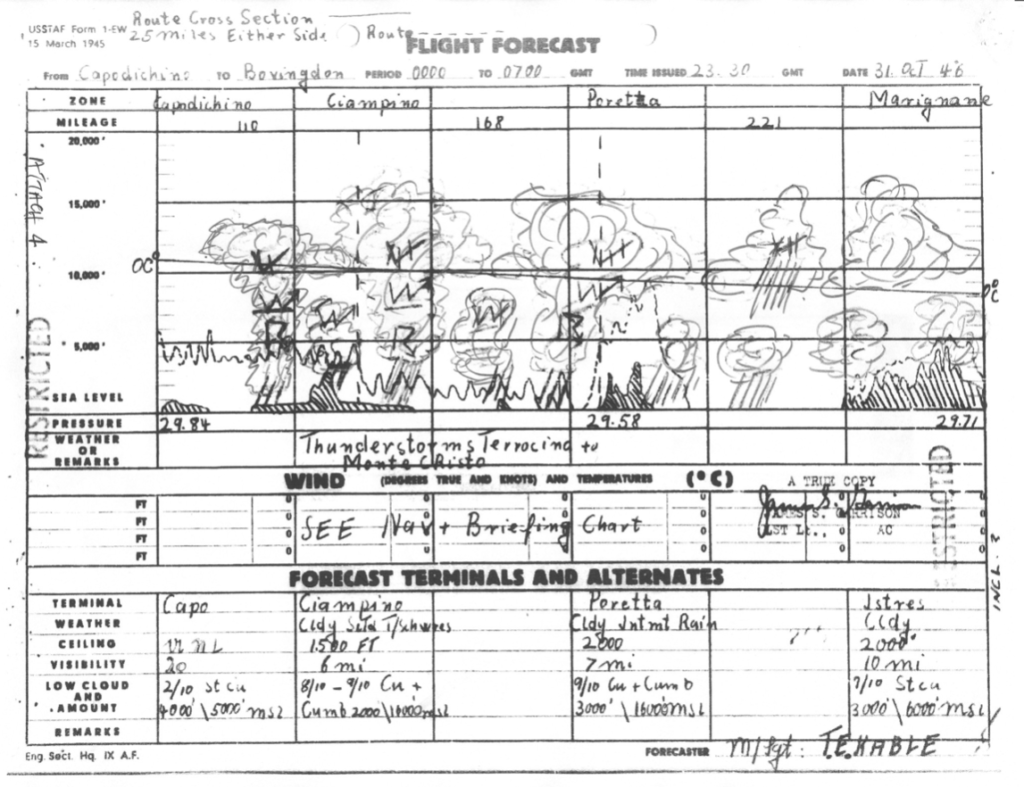 USSTAF Form 1-EW Route Cross Section
15 March 1945 25 Miles Either Side ) Route )
FLIGHT FORECAST
From Capodichino TO Bovingdon PERIOD 0000 TO 0700 GMT TIME ISSUED 23.30 GMT DATE 31 OCT 46
ZONE Capodichino Ciampino Poretta Marignane
MILEAGE 110 168 221
20,000'
15,000'
10,000'
5,000'
SEA LEVEL
ATTACH 4.
RESTRICTED
0C°
0°C
PRESSURE 29.84 29.58 29.71
WEATHER OR REMARKS Thunderstorms Terrocina to
Monte CRisto
WIND (DEGREES TRUE AND KNOTS) AND TEMPERATURES (°C)
A TRUE COPY
FT
FT
FT
FT
SEE Nav + Briefing Chart
JAMES S. HARRISON
1ST Lt., AC
RESTRICTED
INCL. 2
FORECAST TERMINALS AND ALTERNATES
TERMINAL Capo Ciampino Poretta Istres
WEATHER Cldy Sctd T/showres Cldy Intmt Rain Cldy
CEILING UNL 1500 FT 2000 2000'
VISIBILITY 20 6 mi 7 mi 10 mi
LOW CLOUD AND AMOUNT 2/10 St cu 8/10 - 9/10 Cu + 9/10 Cu + Cumb 7/10 Stcu
4000'\5000' msl Cumb 2000\16000msl 3000'\16000msl 3000'\6000' msl
REMARKS
Eng. Sect. Hq. IX A.F. FORECASTER M/Sgt. T.E. KABLE